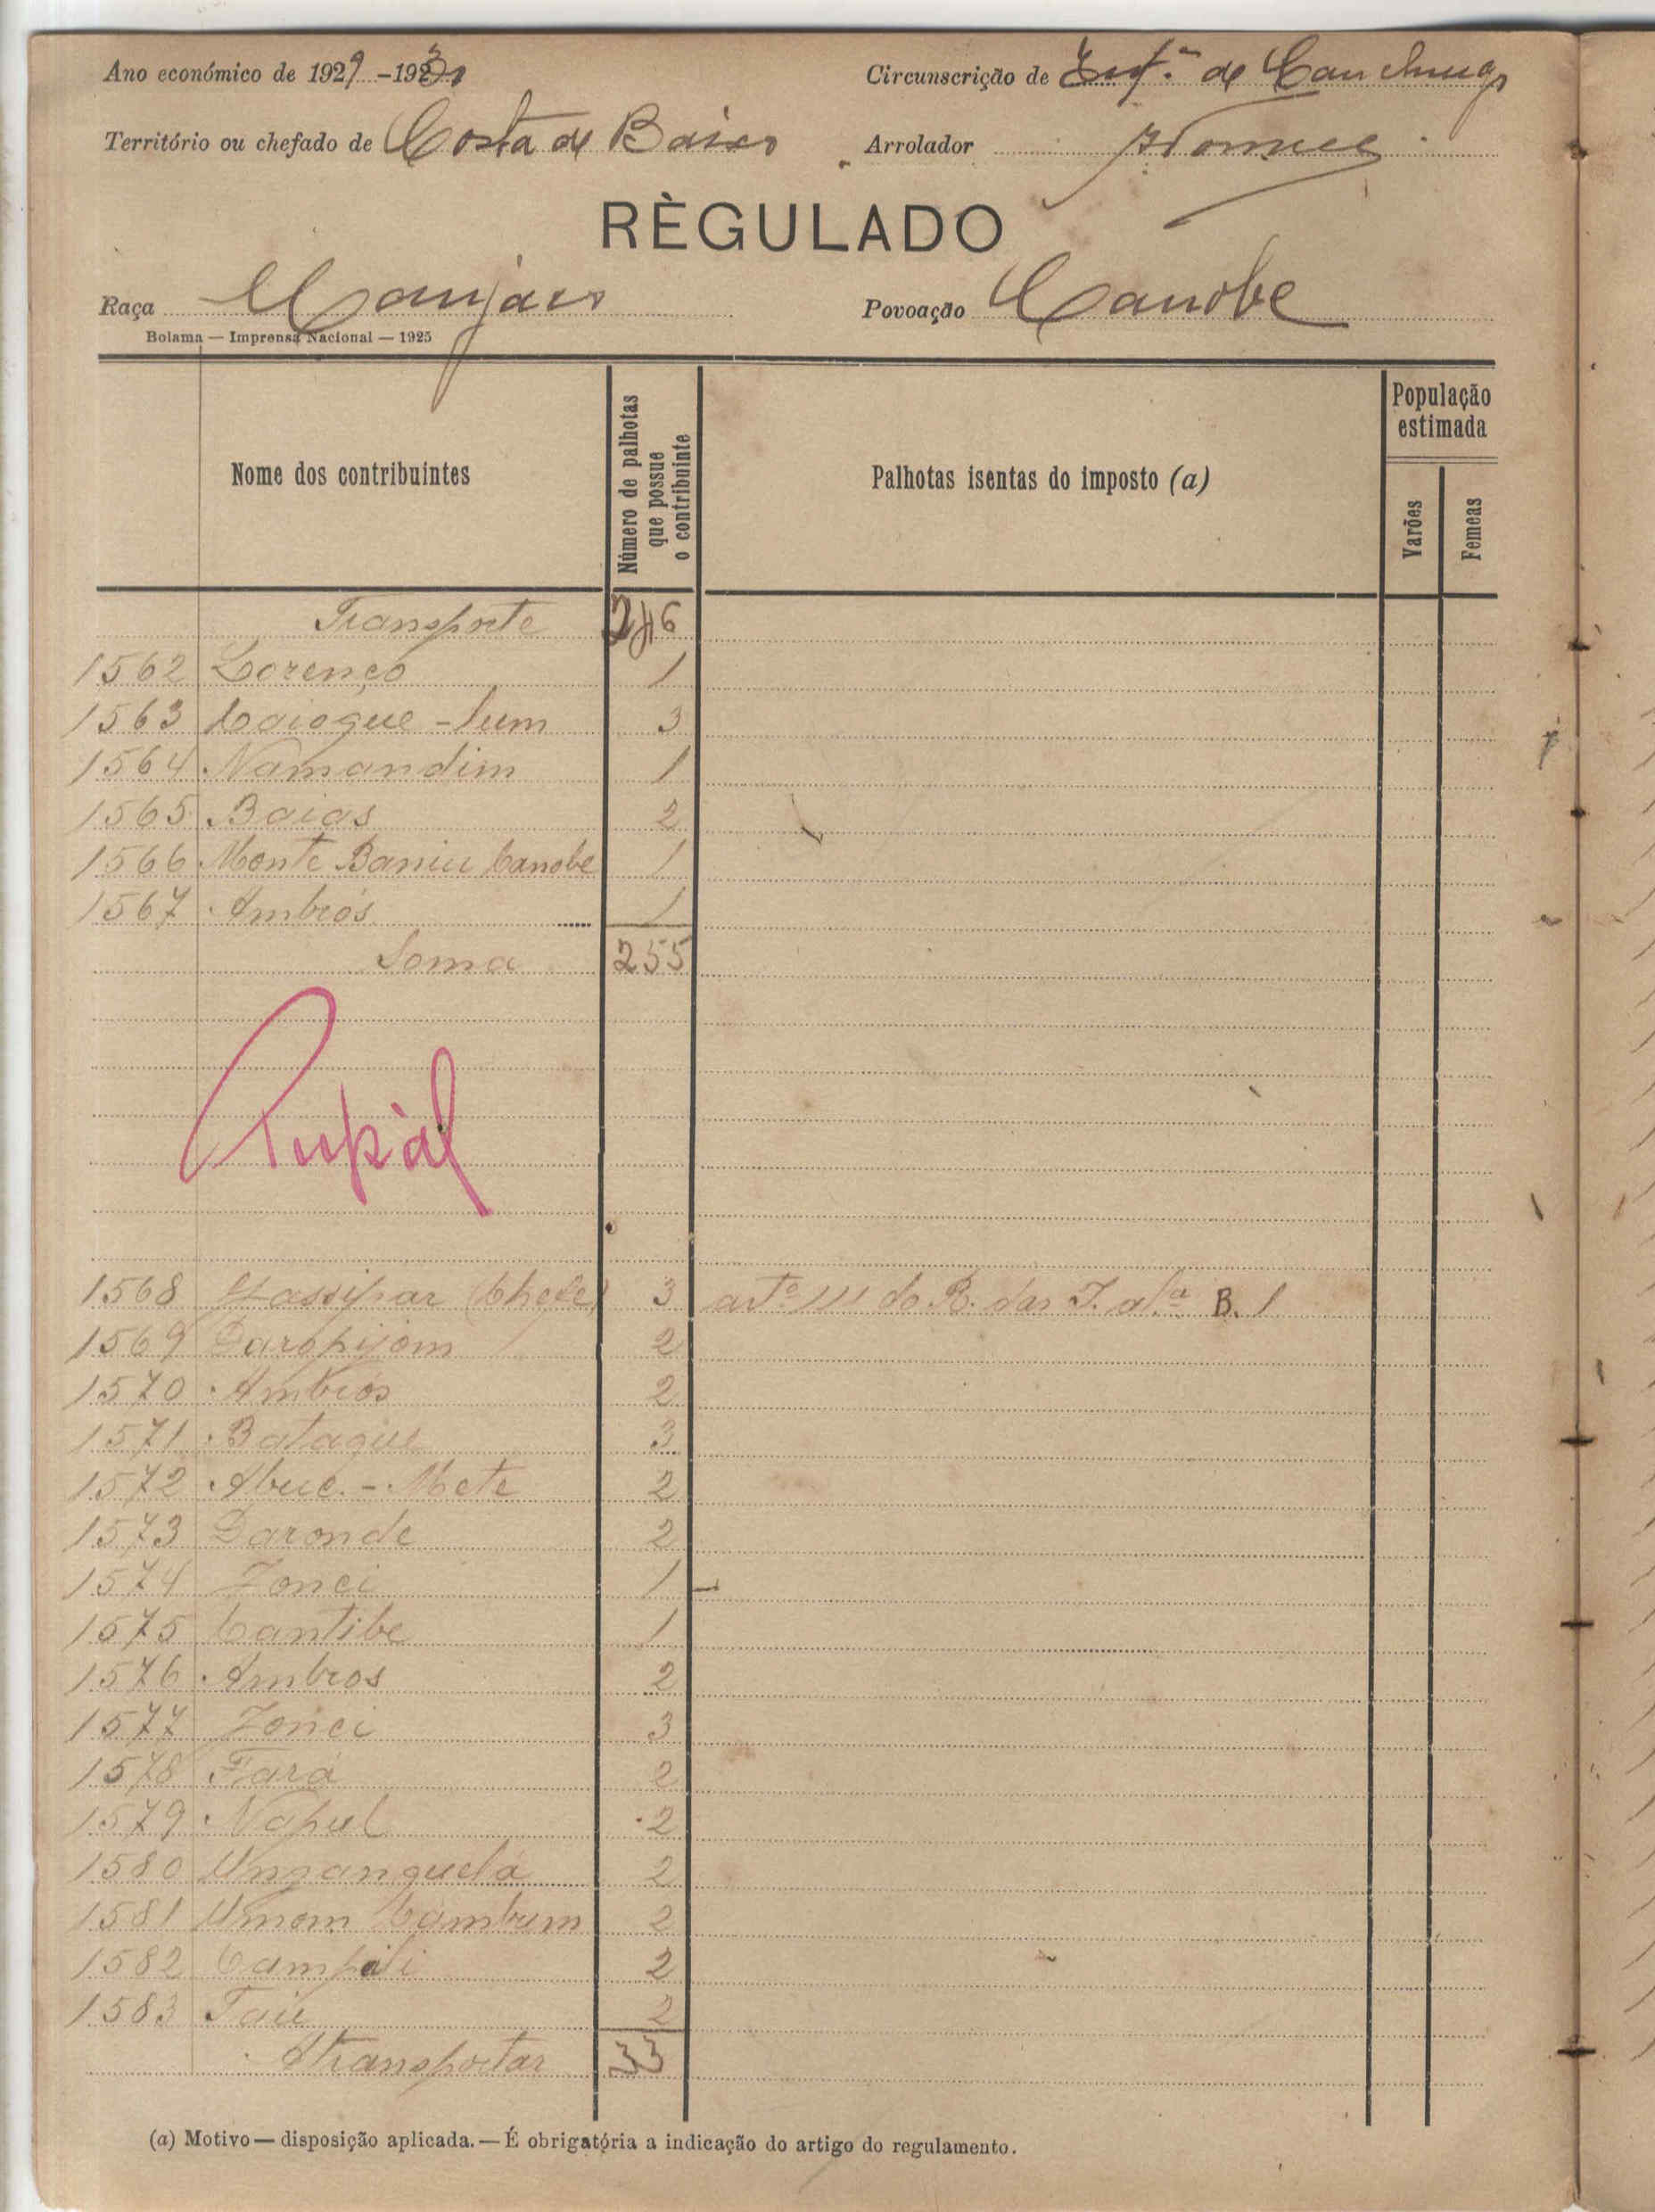 Ano económico de 1929 - 1930
Circunscrição de de Canchungo
Território ou chefado de Costa de Baixo
Arrolador
RÈGULADO
Raça Manjaco
Povoação Canobe
Bolama — Imprensa Nacional — 1925
Nome dos contribuintes
Número de palhotas que possue o contribuinte
Palhotas isentas do imposto (a)
População estimada
Varões
Femeas
Transporte 246
1562 Lorenço 1
1563 Caioque - lum 3
1564 Namandim 1
1565 Baias 2
1566 Monte Baniu Canobe 1
1567 Ambrós 1
Soma 255
Tupàl
1568 Gassipar (Chefe) 3 artº 111 do R. das I. alª B. 1
1569 Daropijom 2
1570 Ambrós 2
1571 Bataque 3
1572 Abuc. - Mete 2
1573 Daronde 2
1574 Zonci 1
1575 Cantibe 1
1576 Ambros 2
1577 Zonci 3
1578 Fará 2
1579 Napul 2
1580 Umanguelá 2
1581 Umom Cambum 2
1582 Campili 2
1583 Taiu 2
A transportar 33
(a) Motivo — disposição aplicada. — É obrigatória a indicação do artigo do regulamento.